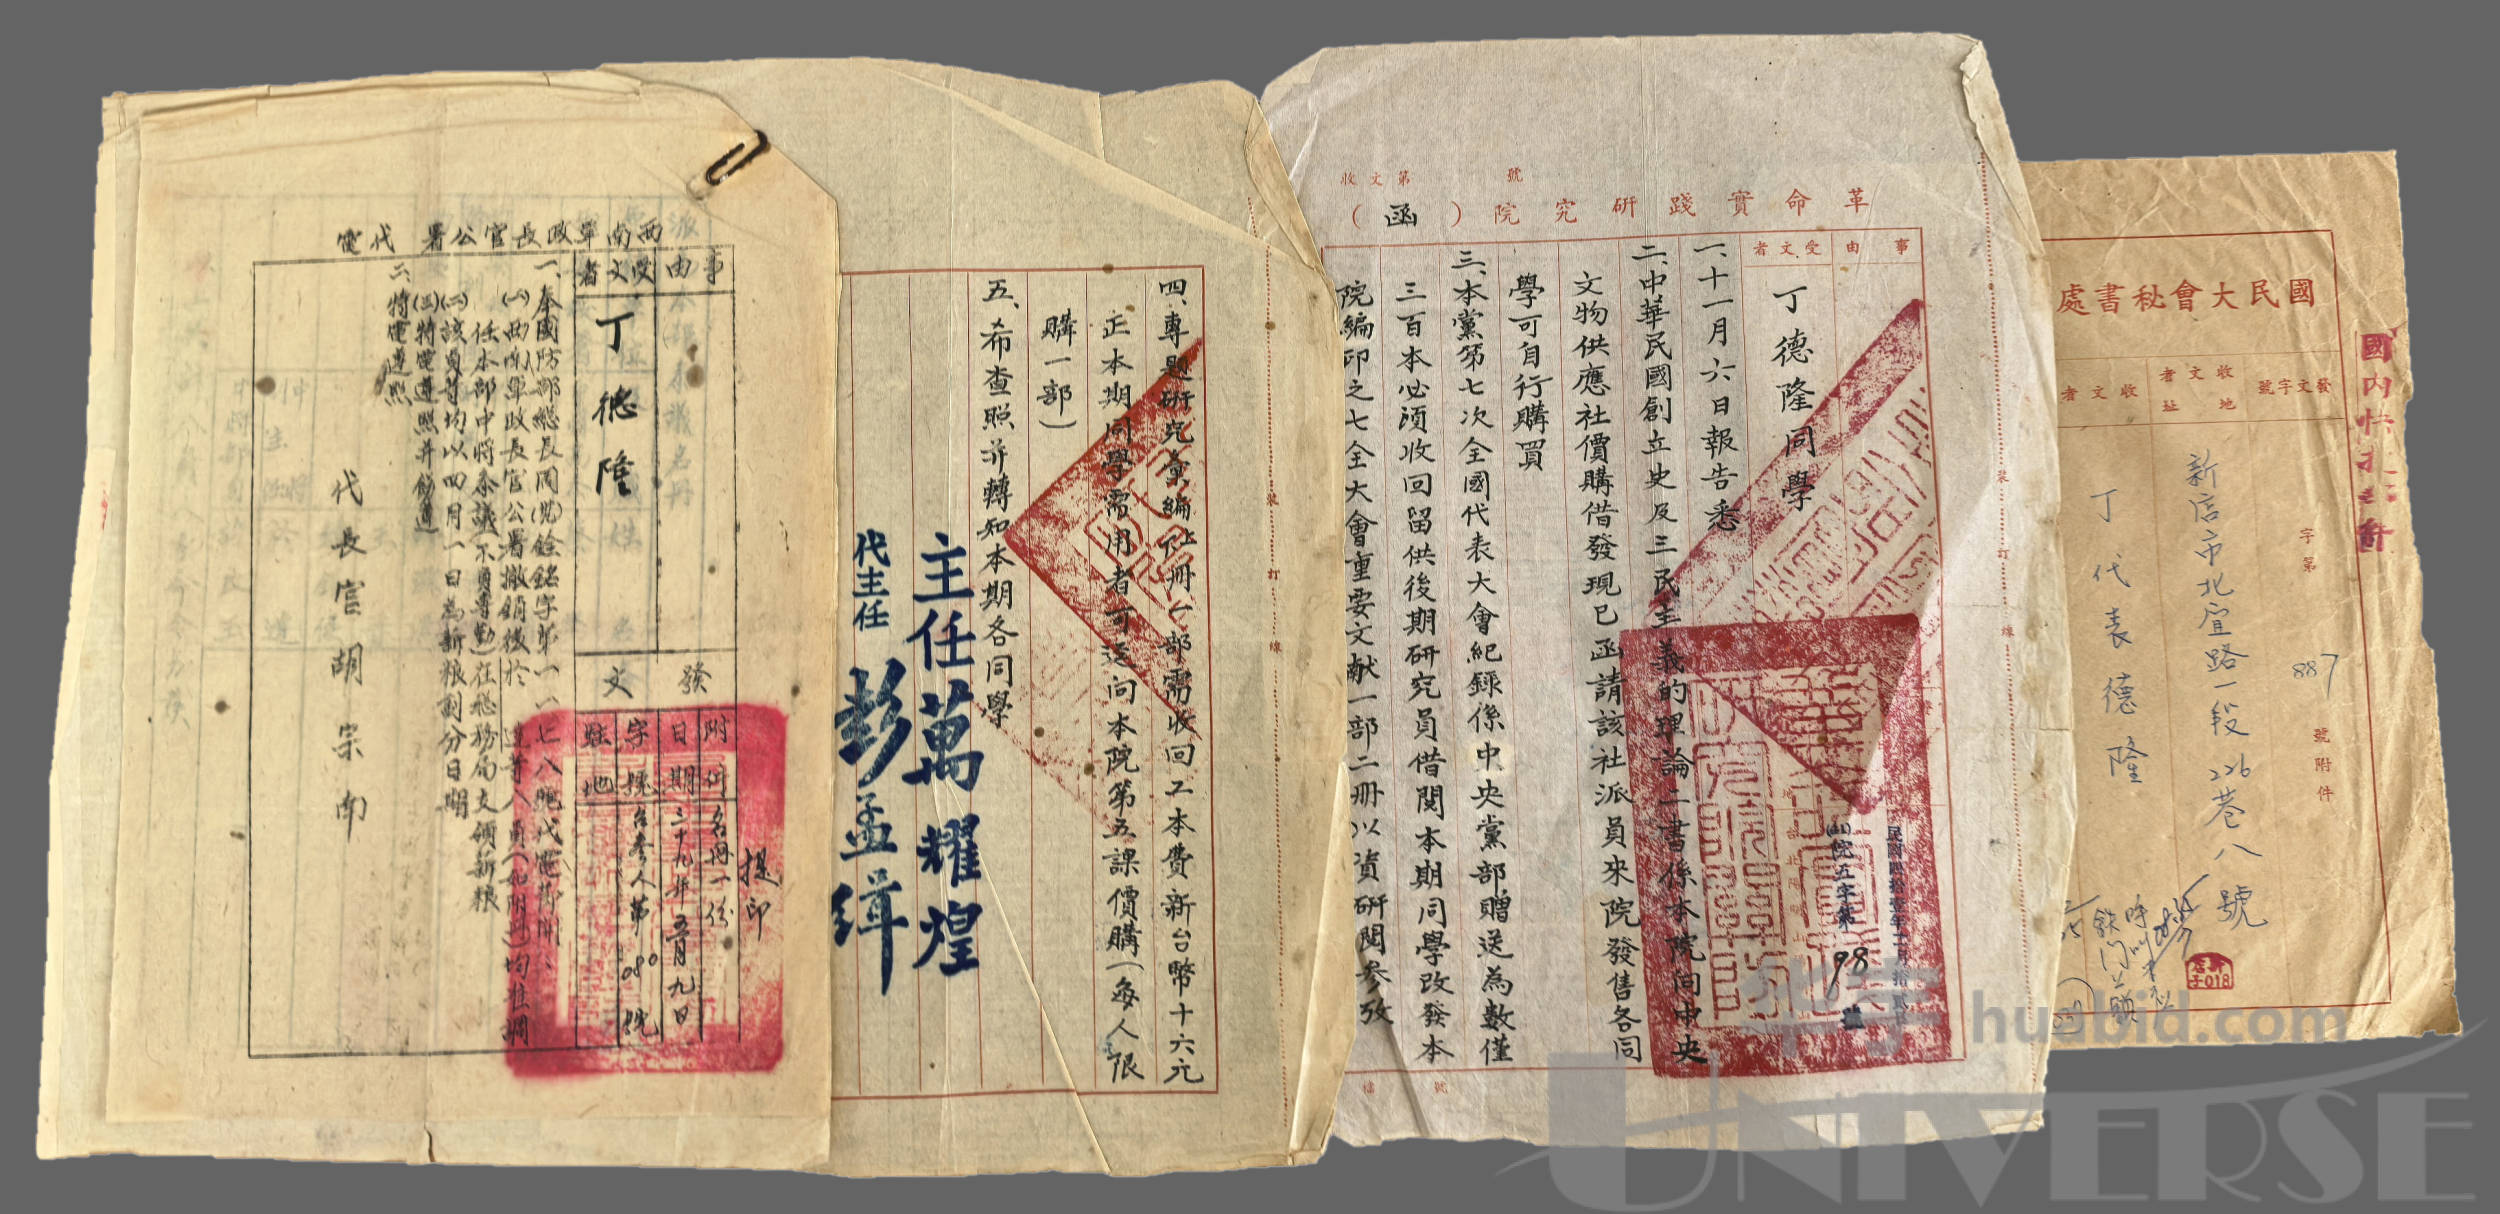 國民大會秘書處
國內快遞郵件
發文字號
字第
887
號附件
收文者地址
新店市北宜路一段226巷八號
收文者
丁代表德隆
收文第 號
革命實踐研究院(函)
事由
受文者
丁德隆同學
民國四拾壹年
院五字第98號
一、十一月六日報告悉
二、中華民國創立史及三民主義的理論二書係本院向中央
文物供應社價購借發現已函請該社派員來院發售各同
學可自行購買
三、本黨第七次全國代表大會紀錄係中央黨部贈送為數僅
三百本必須收回留供後期研究員借閱本期同學改發本
院編印之七全大會重要文献一部二冊以資研閱參攷
裝 訂 線
檔 號
四、專題研究彙編仕冊一部需收回工本費新台幣十六元
正本期同學需用者可逕向本院第五課價購(每人限
購一部)
五、希查照并轉知本期各同學
主任萬耀煌
代主任彭孟緝
裝 訂 線
西南軍政長官公署 代電
事由
受文者
丁德隆
發文
附件 名冊一份
日期 三十九年五月九日
字號 台參人第080號
駐地
提印
一、奉國防部總長周(39)銓銘字第一一七八號代電節開:
(一)西南軍政長官公署撤銷後於
任本部中將參議(不負專勤)在總務局支領新粮
(二)該員等均以四月一日為新粮劃分日期
(三)特電遵照并飭遵
二、特電遵照
代長官胡宗南
華宇 huabid.com
UNIVERSE